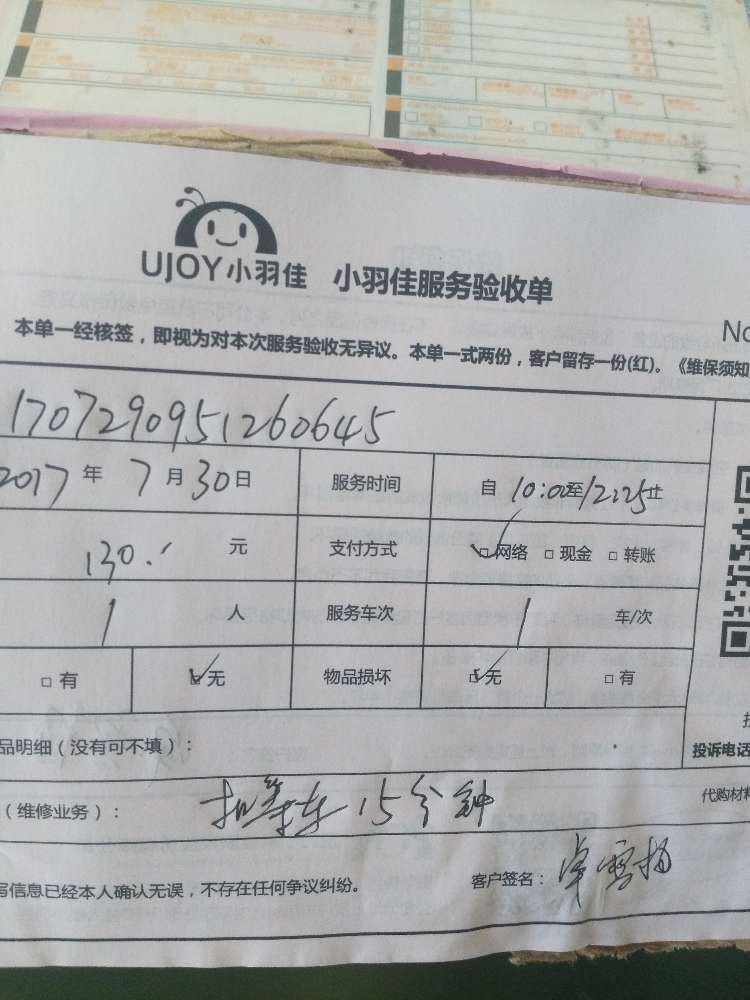 UJOY小羽佳 小羽佳服务验收单
No
本单一经核签，即视为对本次服务验收无异议。本单一式两份，客户留存一份(红)。《维保须知
170729095 1260645
2017 年 7 月 30 日 服务时间 自 10:00至12:25止
130. 元 支付方式 网络 现金 转账
1 人 服务车次 1 车/次
有 无 物品损坏 无 有
品明细（没有可不填）：
投诉电话
（维修业务）： 扣等车15分钟
代购材料
写信息已经本人确认无误，不存在任何争议纠纷。 客户签名：卓雪扬